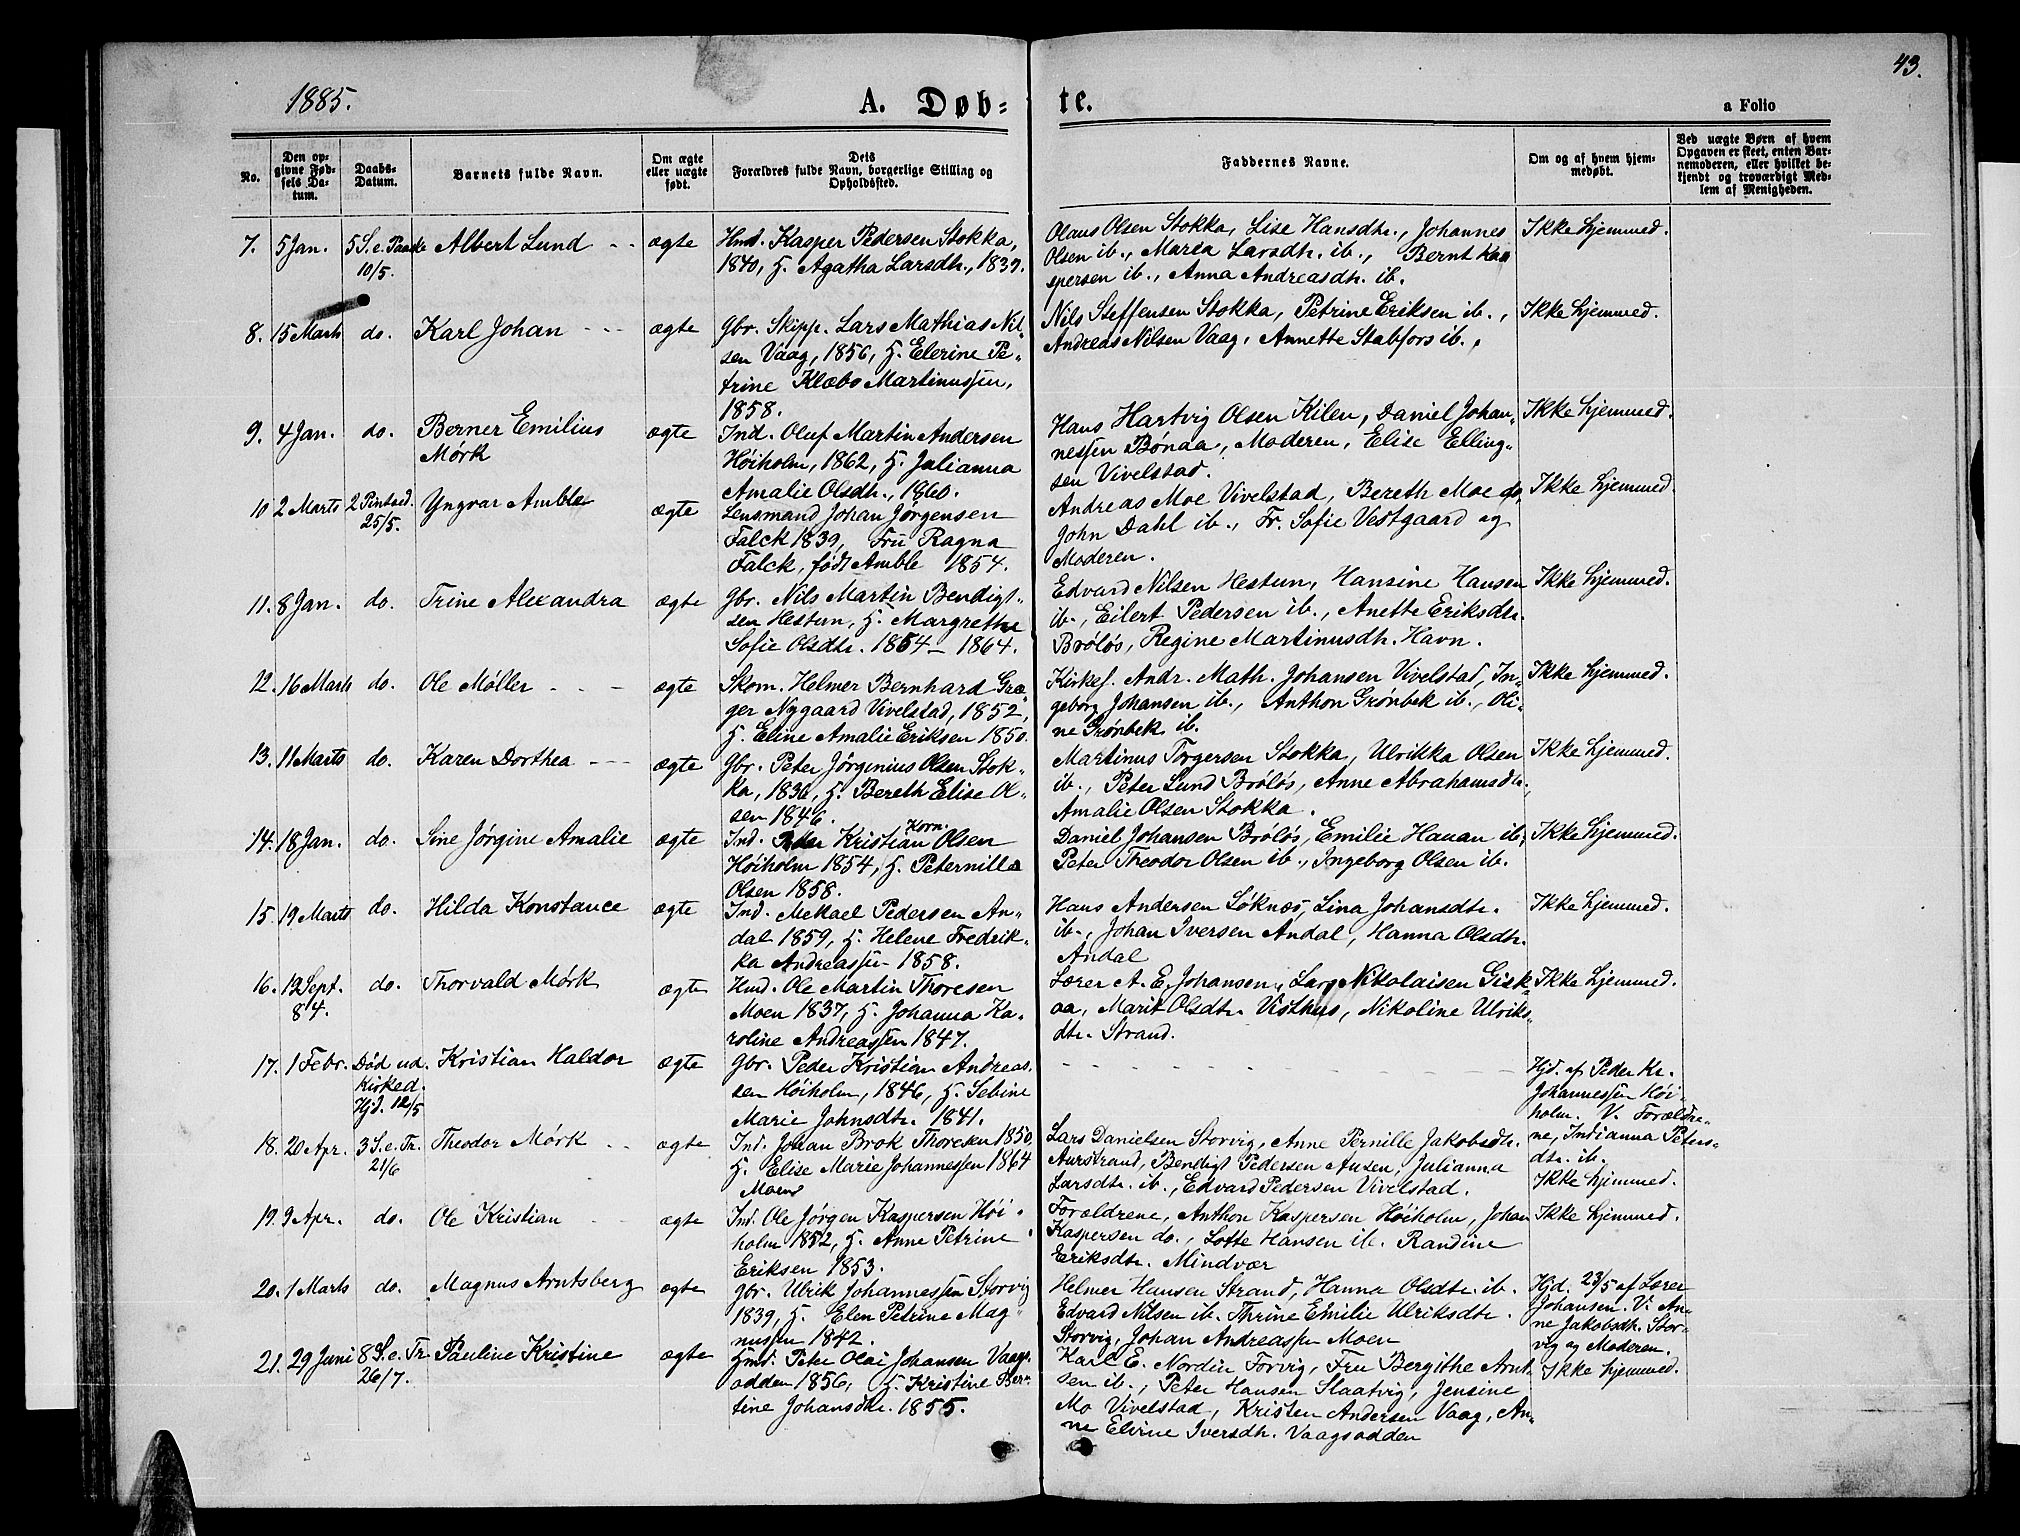 43.
1885.
A. Døb-
te.
a Folio
No.
Den op-
givne Fød-
sels Da-
tum.
Daabs-
Datum.
Barnets fulde Navn.
Om ægte
eller uægte
født.
Dets
Forældres fulde Navn, borgerlige Stilling og
Opholdssted.
Faddernes Navne.
Om og af hvem hjem-
medøbt.
Ved uægte Børn af hvem
Opgaven er skeet, enten Bar-
nemoderen, eller hvilket be-
kjendt og troværdigt Med-
lem af Menigheden.
7. 5 Jan. 5 S. e. Paaske Albert Lund ægte Hmd. Kasper Pedersen Stokka,
10/5. 1840, H. Agatha Larsdtr., 1839.
Olaus Olsen Stokka, Lise Hansdtr., Johannes
Olsen ib., Maria Larsdtr. ib., Bernt Kas
persen ib., Anna Andreasdtr. ib.
Ikke hjemmed.
8. 15 Marts do. Karl Johan ægte Gbr. Skipp. Lars Mathias Nil-
sen Vaag, 1856, H. Elerine Pe-
trine Klæbo Martinussen,
1858.
Nils Steffensen Stokka, Petrine Eriksen ib.,
Andreas Nilsen Vaag, Annette Stabfors ib.,
Ikke hjemmed.
9. 4 Jan. do. Berner Emilius ægte Ind. Oluf Martin Andersen
Mørk Høiholm, 1862, H. Julianna
Amalie Olsdtr., 1860.
Hans Hartvig Olsen Kilen, Daniel Johan-
nessen Bønaa, Moderen, Elise Elling-
sen Vivelstad.
Ikke hjemmed.
10 2 Marts 2 Pintsed. Yngvar Amble ægte Lensmand Johan Jørgensen
25/5. Falck 1839, Fru Ragna
Falck, født Amble 1854.
Andreas Moe Vivelstad, Bereth Moe do,
John Dahl ib., Fr. Sofie Vestgaard og
Moderen.
Ikke hjemmed.
11. 8 Jan. do. Trine Alexandra ægte Gbr. Nils Martin Bendigt-
sen Hestun, H. Margrethe
Sofie Olsdtr. 1854 - 1864.
Edvard Nilsen Hestun, Hansine Hansen
ib., Eilert Pedersen ib., Anette Eriksdtr.
Brøløs, Regine Martinusdtr. Havn.
Ikke hjemmed.
12. 16 Marts do. Ole Møller ægte Skom. Helmer Bernhard Græ-
ger Nygaard Vivelstad, 1852,
H. Eline Amalie Eriksen 1850.
Kirkes. Andr. Math. Johansen Vivelstad, In-
geborg Johansen ib., Anthon Grønbek ib., Oli-
ne Grønbek ib.
Ikke hjemmed.
13. 11 Marts do. Karen Dorthea ægte Gbr. Peter Jørginius Olsen Stok-
ka, 1836, H. Bereth Elise Ol-
sen 1846.
Martinus Torgersen Stokka, Ulrikka Olsen
ib., Peter Lund Brøløs, Anne Abrahamsdtr.
Amalie Olsen Stokka.
Ikke hjemmed.
14. 18 Jan. do. Sine Jørgine Amalie ægte Ind. Peder Kristian Korn. Olsen
Høiholm 1854, H. Peternilla
Olsen 1858.
Daniel Johansen Brøløs, Emilie Hanan ib,
Peter Theodor Olsen ib., Ingeborg Olsen ib.
Ikke hjemmed.
15. 19 Marts do. Hilda Konstance ægte Ind. Mekael Pedersen An-
dal 1859, H. Helene Fredrik-
ka Andreassen 1858.
Hans Andersen Søknæs, Lina Johansdtr.
ib., Johan Iversen Andal, Hanna Olsdtr.
Andal
Ikke hjemmed.
16. 12 Sept. do. Thorvald Mørk ægte Hmd. Ole Martin Thoresen
84. Moen 1837, H. Johanna Ka-
roline Andreassen 1847.
Lærer A. E. Johansen, Lars Nikolaisen Gisk-
aa, Marit Olsdtr. Visthus, Nikoline Ulriks-
dtr. Strand.
Ikke hjemmed.
17. 1 Febr. Død ud. Kristian Haldor ægte Gbr. Peder Kristian Andreas-
Kirked. sen Høiholm, 1846, H. Sebine
Hjd. 12/5 Marie Johnsdtr. 1841.
Hjd. af Peder Kr.
Johannessen Høi-
holm. V. Forældre-
ne, Indianna Peters-
dtr. ib.
18. 20 Apr. 3 S. e. Tr. Theodor Mørk ægte Ind. Johan Brok Thoresen 1850,
21/6 H. Elise Marie Johannessen 1864
Moen
Lars Danielsen Storvig, Anne Pernille Jakobsdtr.
Aurstrand, Bendigt Pedersen Ausen, Julianna
Larsdtr. ib., Edvard Pedersen Vivelstad.
Ikke hjemmed.
19. 9 Apr. do. Ole Kristian ægte Ind. Ole Jørgen Kaspersen Høi-
holm 1852, H. Anne Petrine
Eriksen 1853.
Forældrene, Anthon Kaspersen Høiholm, Johan
Kaspersen do., Lotte Hansen ib. Randine
Eriksdtr. Mindvær
Ikke hjemmed.
20. 1 Marts do. Magnus Arntsberg ægte Gbr. Ulrik Johannessen Storvig
1839, H. Elen Petrine Mag-
nussen 1842.
Helmer Hansen Strand, Hanna Olsdtr. ib.
Edvard Nilsen ib. Thrine Emilie Ulriksdtr.
Storvig, Johan Andreassen Moen
Hjd. 23/5 af Lærer
Johansen. V. An-
ne Jakobsdtr. Stor-
vig og Moderen.
21. 29 Juni 8 S. e. Tr. Pauline Kristine ægte Hmd. Peter Olai Johansen Vaags-
26/7. odden 1856, H. Kristine Ber-
tine Johansdtr. 1855.
Karl E. Nordin Forvig, Fru Bergithe Arnt-
sen ib., Peter Hansen Slaatvig, Jensine
Mo Vivelstad, Kristen Andersen Vaag, An-
ne Elvine Iversdtr. Vaagsodden
Ikke hjemmed.